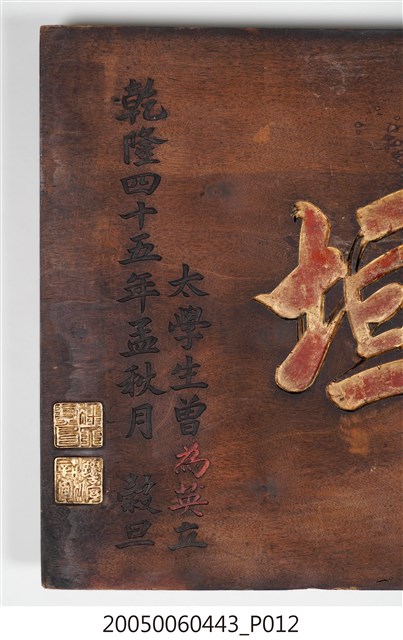 垣
太學生曾為英立
乾隆四十五年孟秋月 穀旦
20050060443_P012